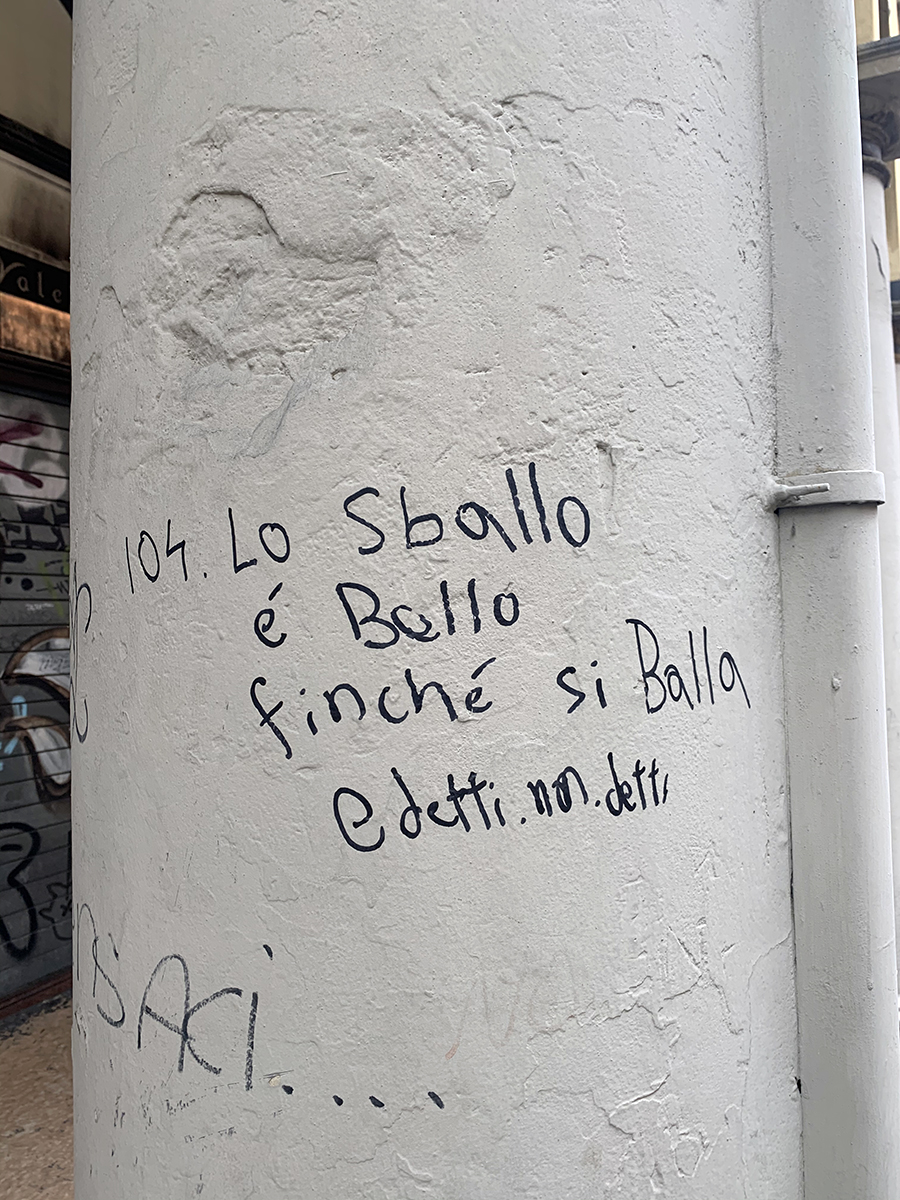 104. Lo Sballo
é Bello
finché si Balla
@detti.non.detti
BACI....